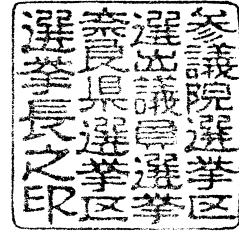 参議院選挙区
選出議員選挙
奈良県選挙区
選挙長之印